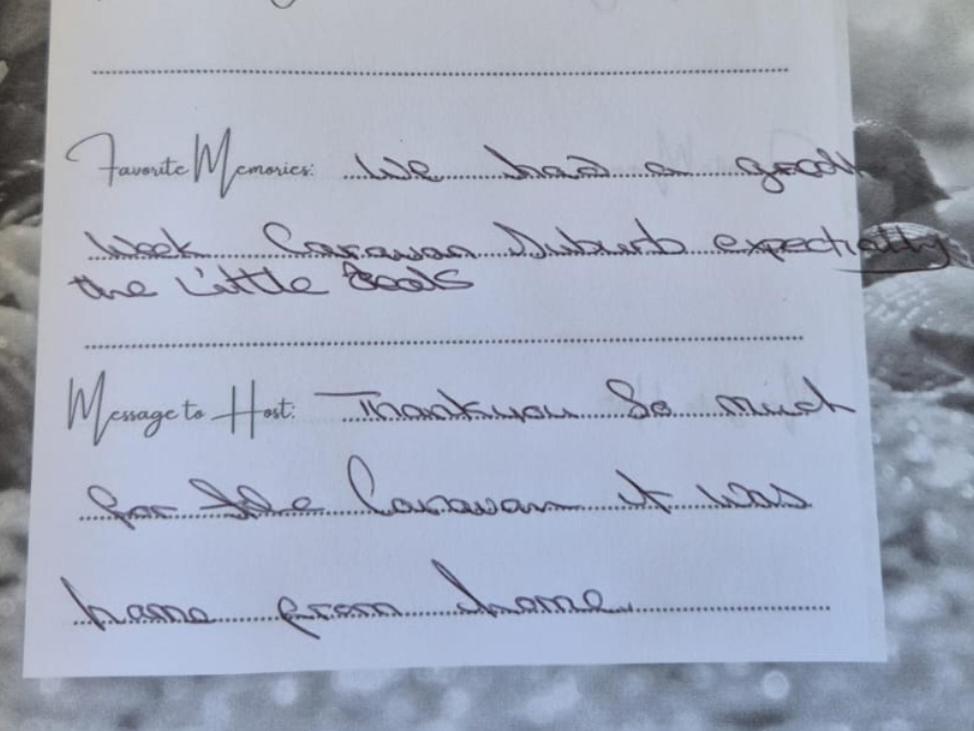 Favorite Memories: We had a good
week Caravan Suburb expectially
the Little
Message to Host: Thankyou So much
for the Caravan it was
home from home.